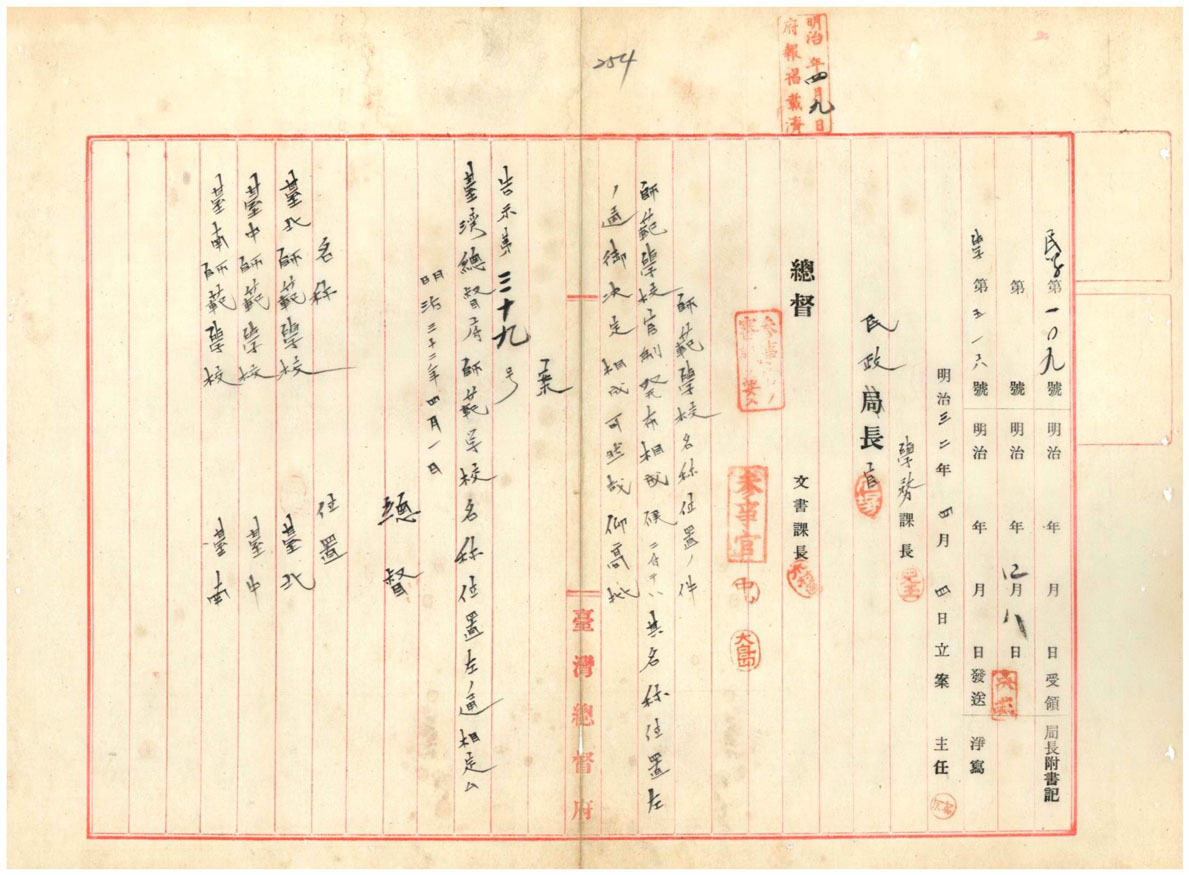 254
明治 年四月九日
府報揭載濟
民學第一〇九號 明治 年 月 日受領 局長附書記
第 號 明治 年四月八日
學第五一六號 明治 年 月 日發送 淨寫
明治三二年四月四日立案 主任
學務課長
民政局長官
總督 文書課長
參事官
中
大島
師範學校名稱位置ノ件
師範學校官制發布相成候ニ付テハ其名稱位置左
ノ通御決定相成可然哉仰高裁
案
告示第三十九号
臺湾總督府師範学校名稱位置左ノ通相定ム
明治三十二年四月一日
總督
名稱 位置
臺北師範學校 臺北
臺中師範學校 臺中
臺南師範學校 臺南
臺灣總督府